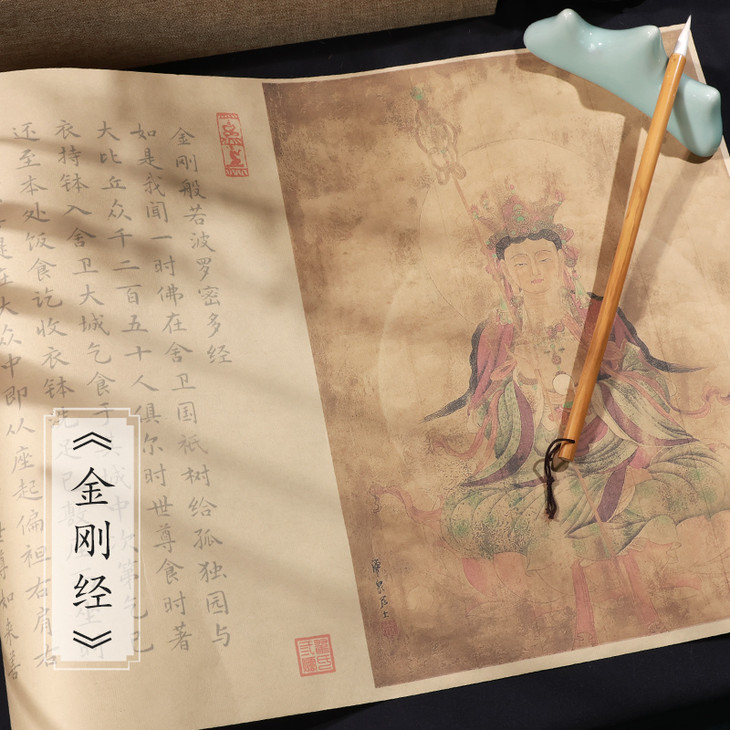 金刚般若波罗密多经
如是我闻一时佛在舍卫国祇树给孤独园与
大比丘众千二百五十人俱尔时世尊食时著
衣持钵入舍卫大城乞食于其城中次第乞已
还至本处饭食讫收衣钵洗足已敷坐时
是在大众中即从座起偏袒右肩右
世尊如来善
《金刚经》